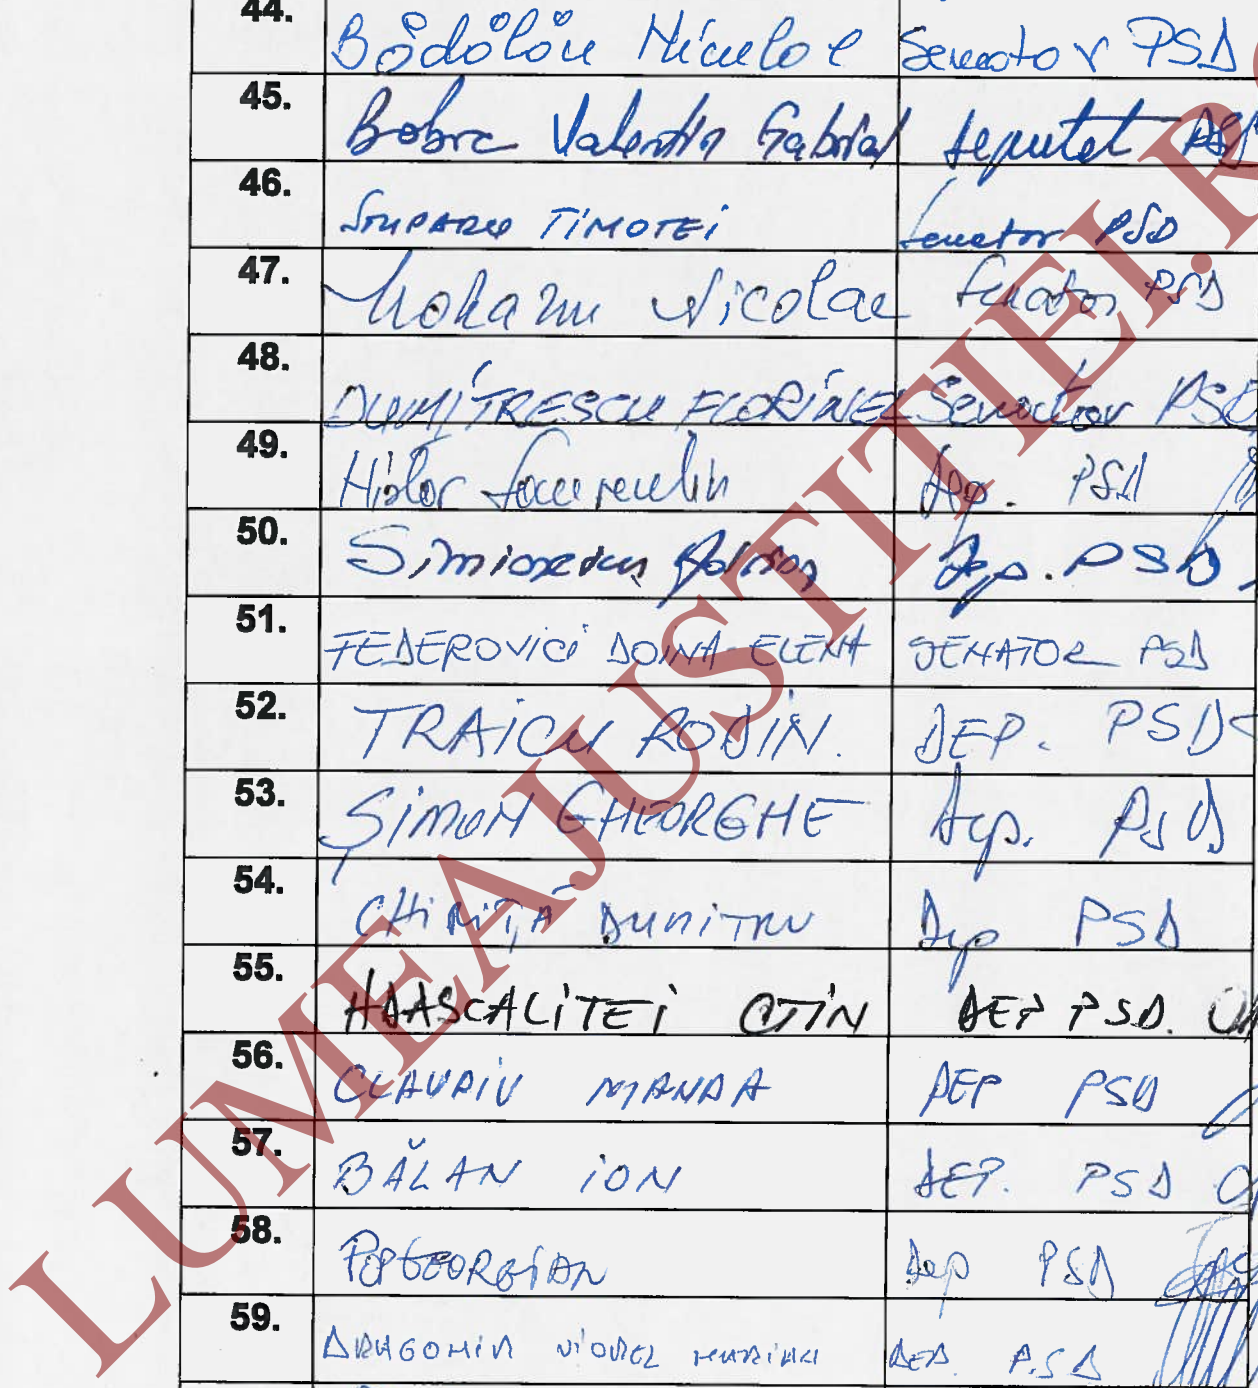 44. Bădălău Niculae Senator PSD
45. Bobre Valentin Gabriel deputat PSD
46. STUPARU TIMOTEI Senator PSD
47. Mohanu Nicolae Senator PSD
48. DUMITRESCU FLORINEL Senator PSD
49. Dep. PSD
50. Simionescu Adrian Dep. PSD
51. FEDEROVICI DOINA-ELENA SENATOR PSD
52. TRAICU ROBIN. DEP. PSD
53. ȘIMON GHEORGHE Dep. PSD
54. CHIRIȚĂ DUMITRU Dep PSD
55. HDASCALITEI CTIN DEP PSD.
56. CLAUDIU MANDA DEP PSD
57. BĂLAN ION DEP. PSD
58. POP GEORGIAN Dep PSD
59. DRAGOMIR VIOREL MARIAN DEP. P.S.D
LUMEAJUSTITIEI.R